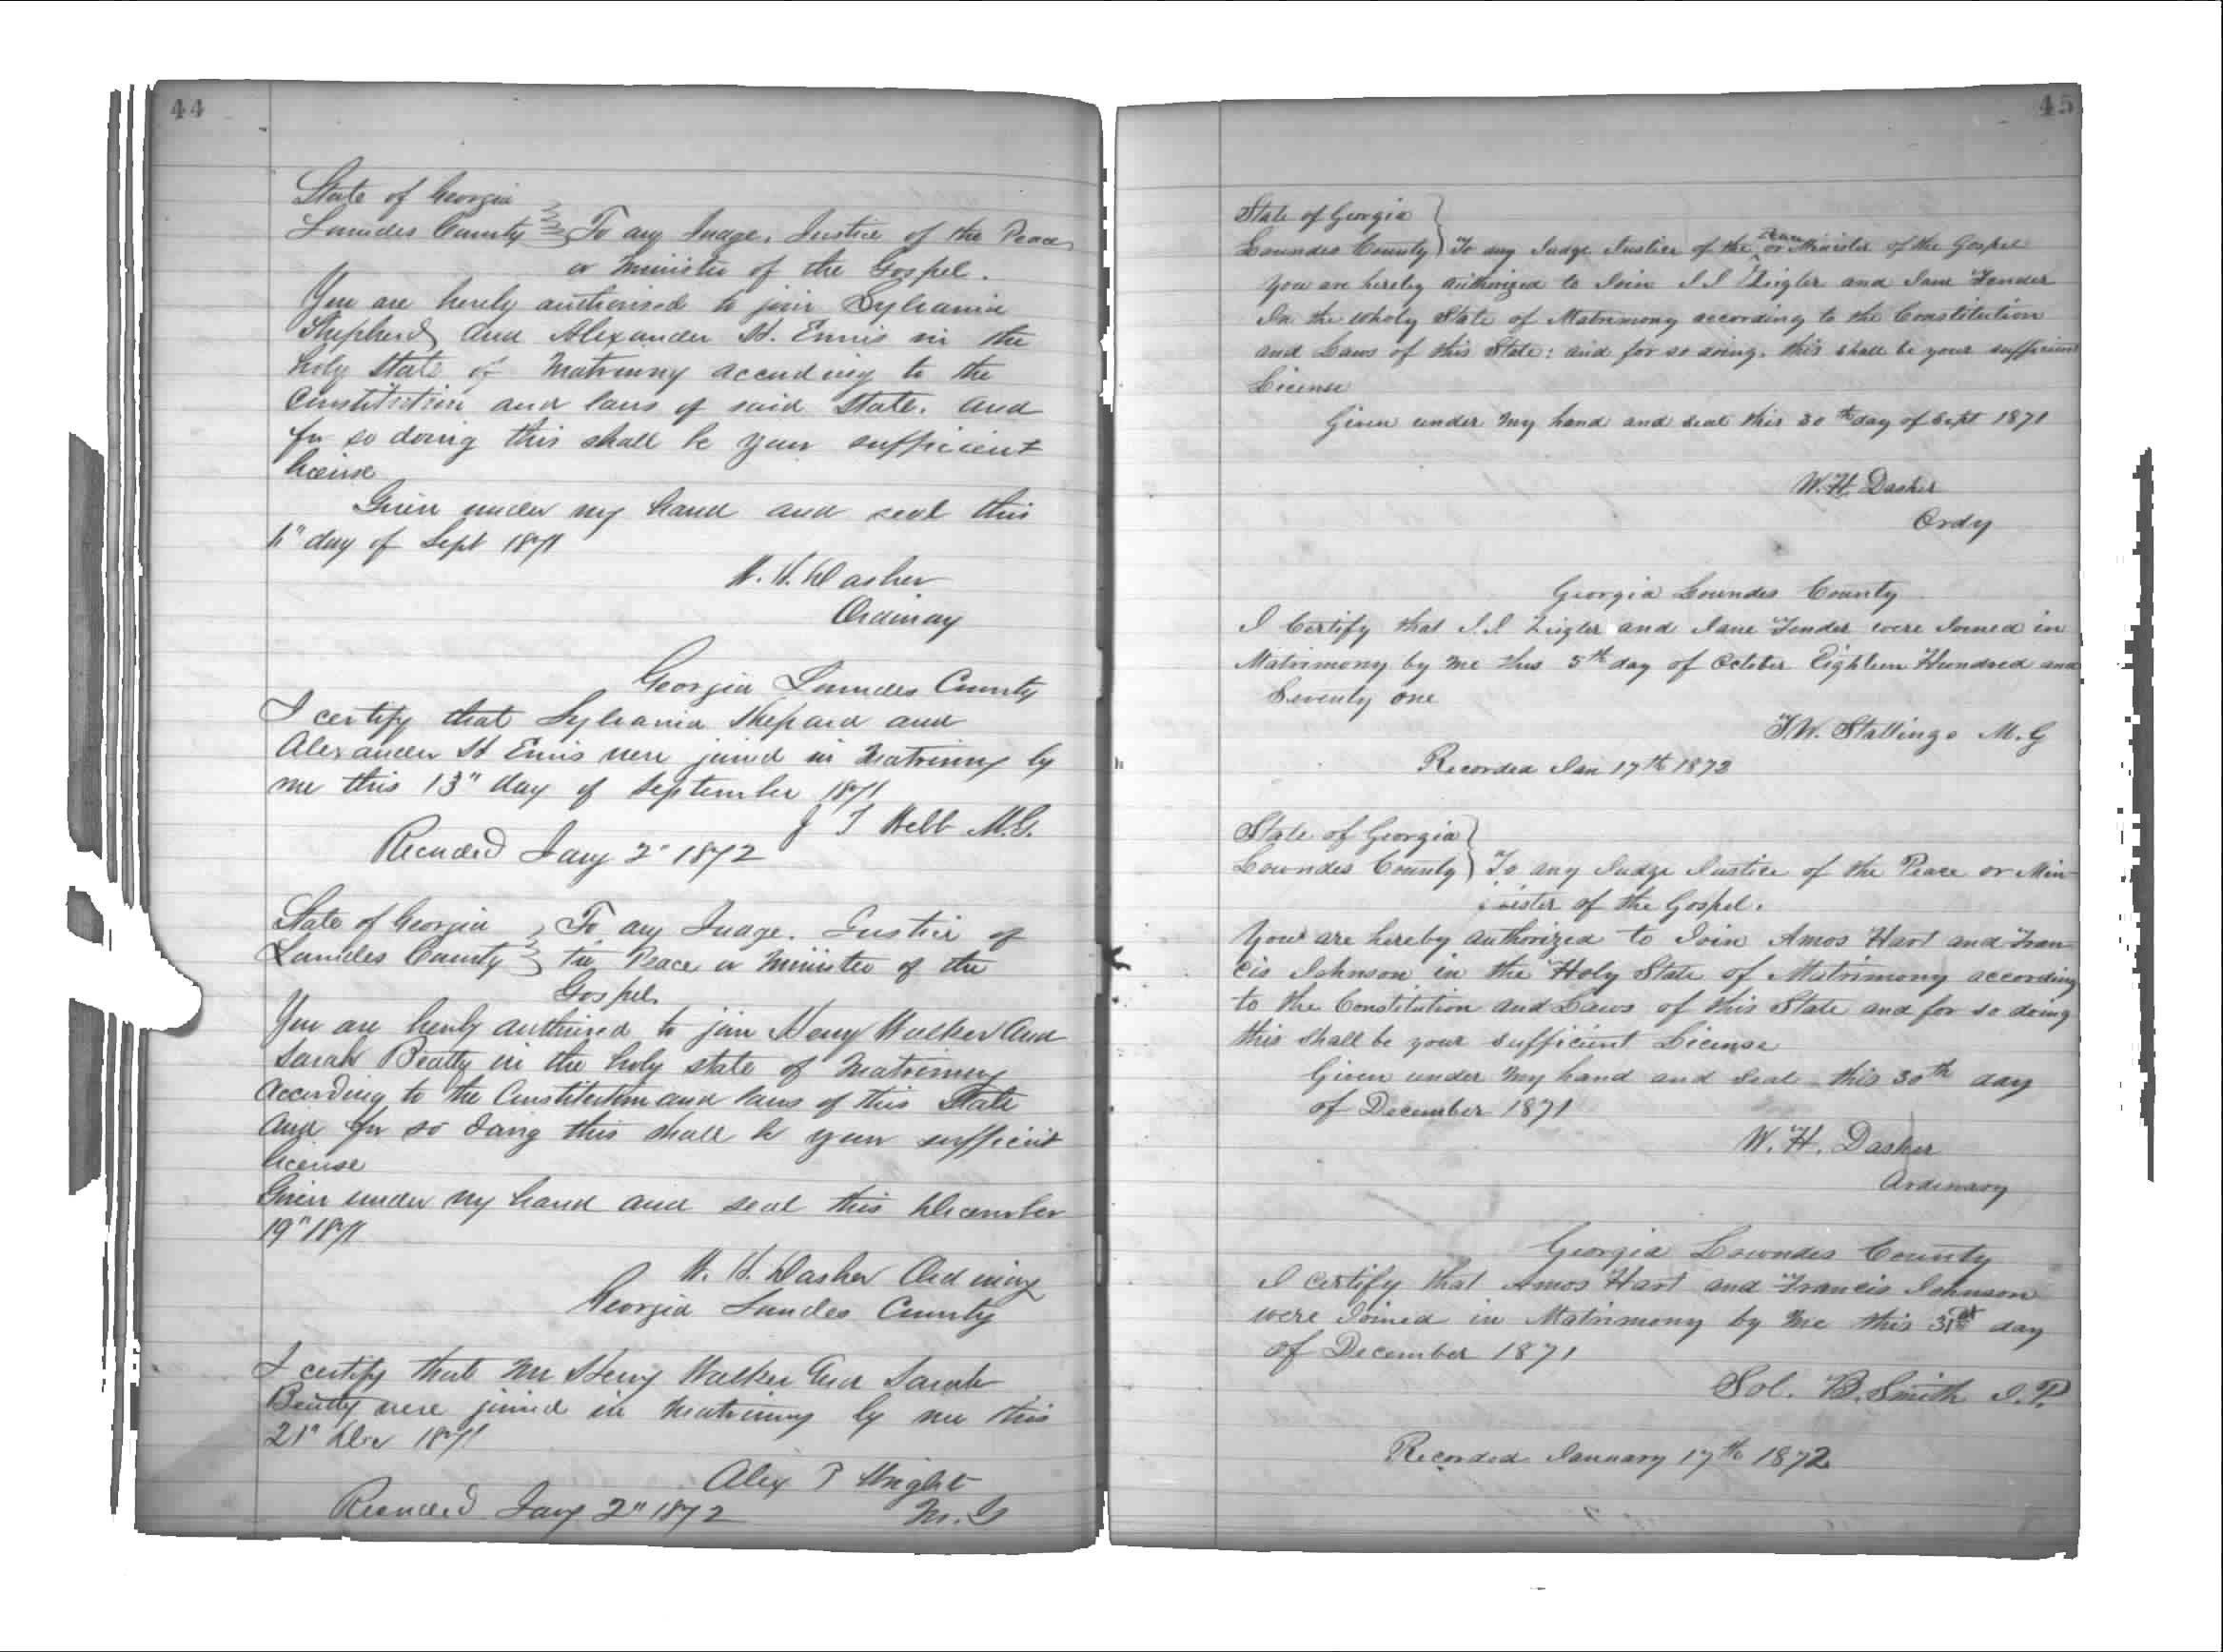 44
State of Georgia
Lowndes County To any Judge, Justice of the Peace
or Minister of the Gospel.
You are hereby authorised to join Sylvania
Shepherd and Alexander St. Ennis in the
holy state of Matrimony according to the
Constitution and laws of said State. And
for so doing this shall be your sufficient
license
Given under my hand and seal this
day of Sept 1871
W. H. Dasher
Ordinay
Georgia Lowndes County
I certify that Sylvania Shepard and
Alexander St Ennis were joined in Matrimony by
me this 13" day of September 1871
J T Webb M.G.
Recorded Jany 2" 1872
State of Georgia
Lowndes County To any Judge. Justice of
the Peace or Minister of the
Gospel.
You are hereby authorised to join Henry Walker and
Sarah Beatty in the holy state of Matrimony
According to the Constitution and laws of this State
And for so doing this shall be your sufficient
license
Given under my hand and seal this December
19" 1871
W. H. Dasher Ordinary
Georgia Lowndes County
I certify that Mr Henry Walker and Sarah
Beatty were joined in Matrimony by me this
21" Dec 1871
Alex P Wright
Recorded Jany 2" 1872 M. G
45
State of Georgia
Lowndes County To any Judge Justice of the Peace or Minister of the Gospel
You are hereby authorized to Join J J Zeigler and Jane Fender
In the wholy State of Matrimony according to the Constitution
and Laws of this State: and for so doing. this shall be your sufficient
License
Given under my hand and seal this 30th day of Sept 1871
W. H. Dasher
Ordy
Georgia Lowndes County
I Certify that J. J. Zeigler and Jane Fender were Joined in
Matrimony by me this 5th day of October Eighteen Hundred and
Seventy one
T. W. Stallings M. G
Recorded Jan 17th 1872
State of Georgia
Lowndes County To any Judge Justice of the Peace or Min-
ister of the Gospel.
You are hereby authorized to Join Amos Hart and Fran-
cis Johnson in the Holy State of Matrimony according
to the Constitution and Laws of this State and for so doing
this shall be your sufficient License
Given under my hand and Seal this 30th day
of December 1871
W. H. Dasher
Ordinary
Georgia Lowndes County
I certify that Amos Hart and Francis Johnson
were Joined in Matrimony by me this 31st day
of December 1871
Sol. B. Smith J. P.
Recorded January 17th 1872